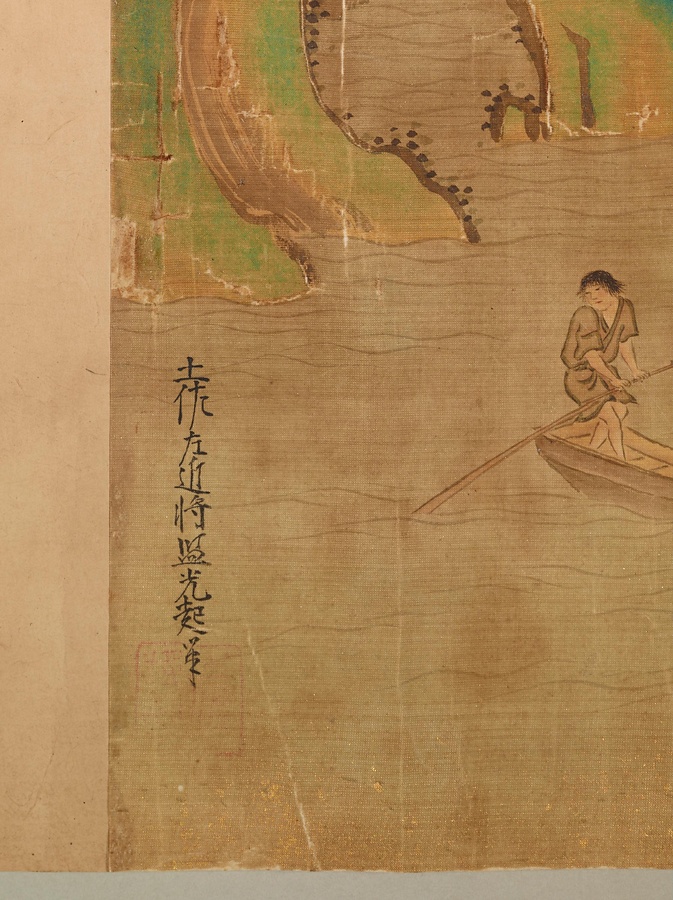 土佐左近將監光起筆